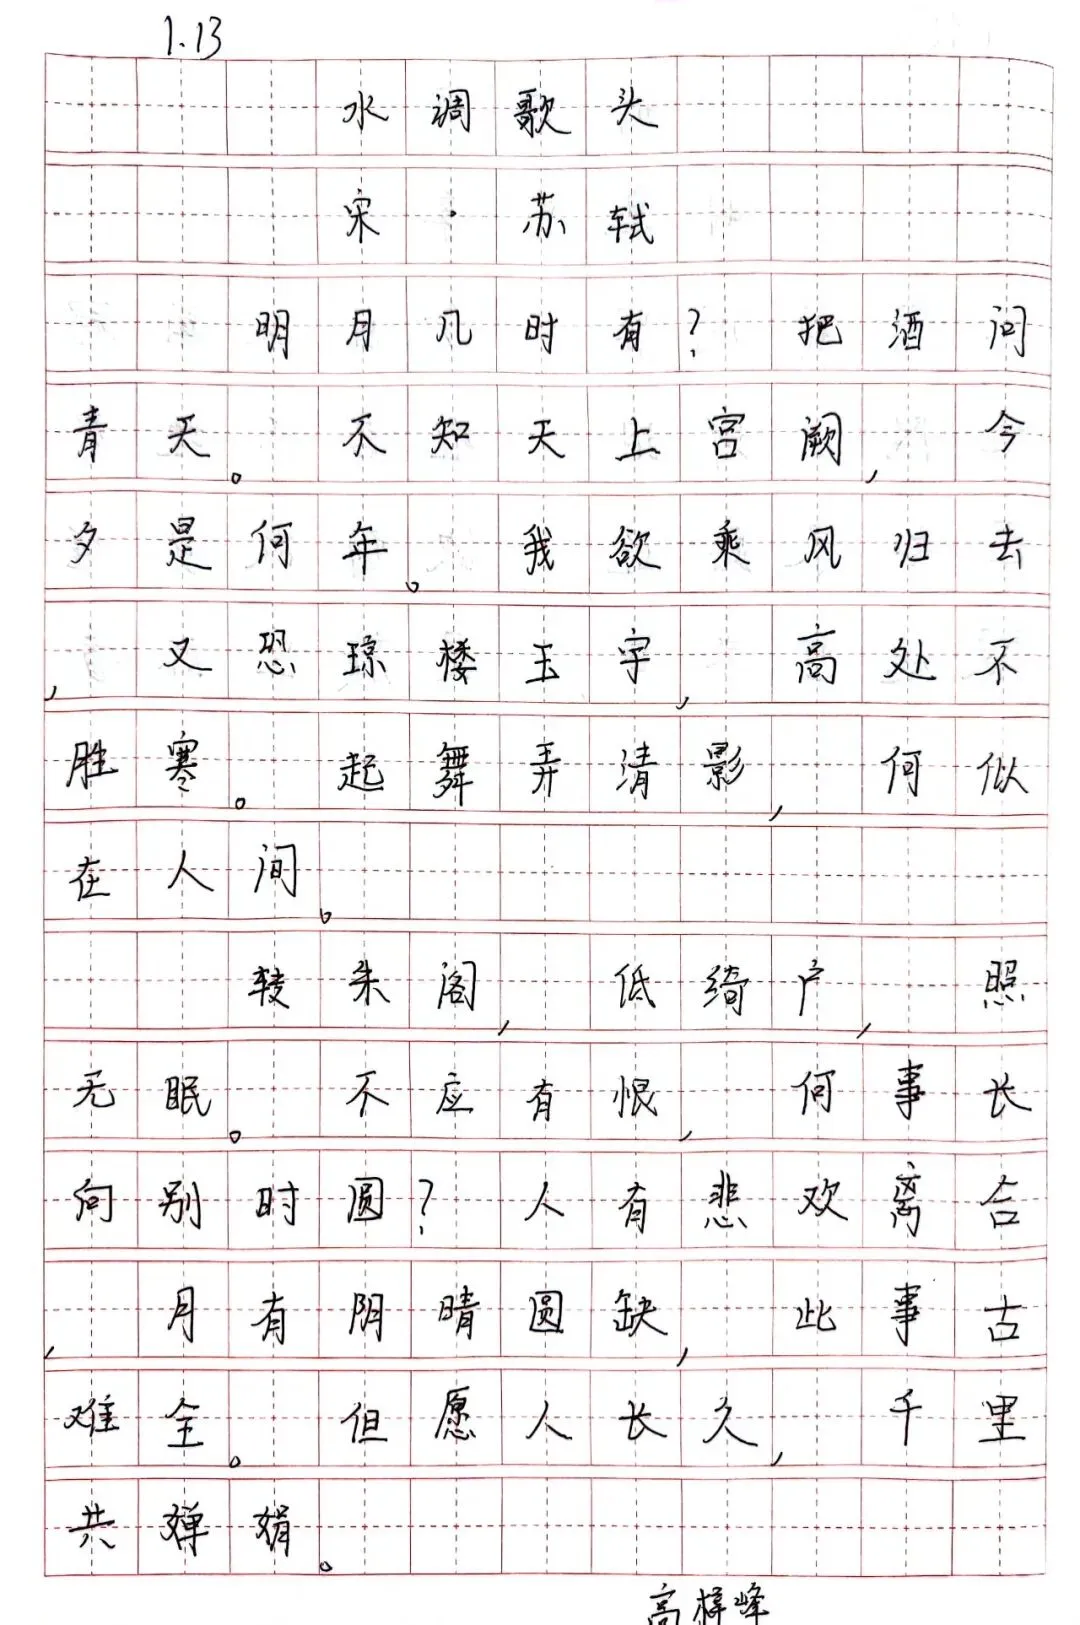 1.13
水调歌头
宋·苏轼
明月几时有?把酒问
青天。不知天上宫阙,今
夕是何年。我欲乘风归去
,又恐琼楼玉宇,高处不
胜寒。起舞弄清影,何似
在人间。
转朱阁,低绮户,照
无眠。不应有恨,何事长
向别时圆?人有悲欢离合
,月有阴晴圆缺,此事古
难全。但愿人长久,千里
共婵娟。
高梓峰